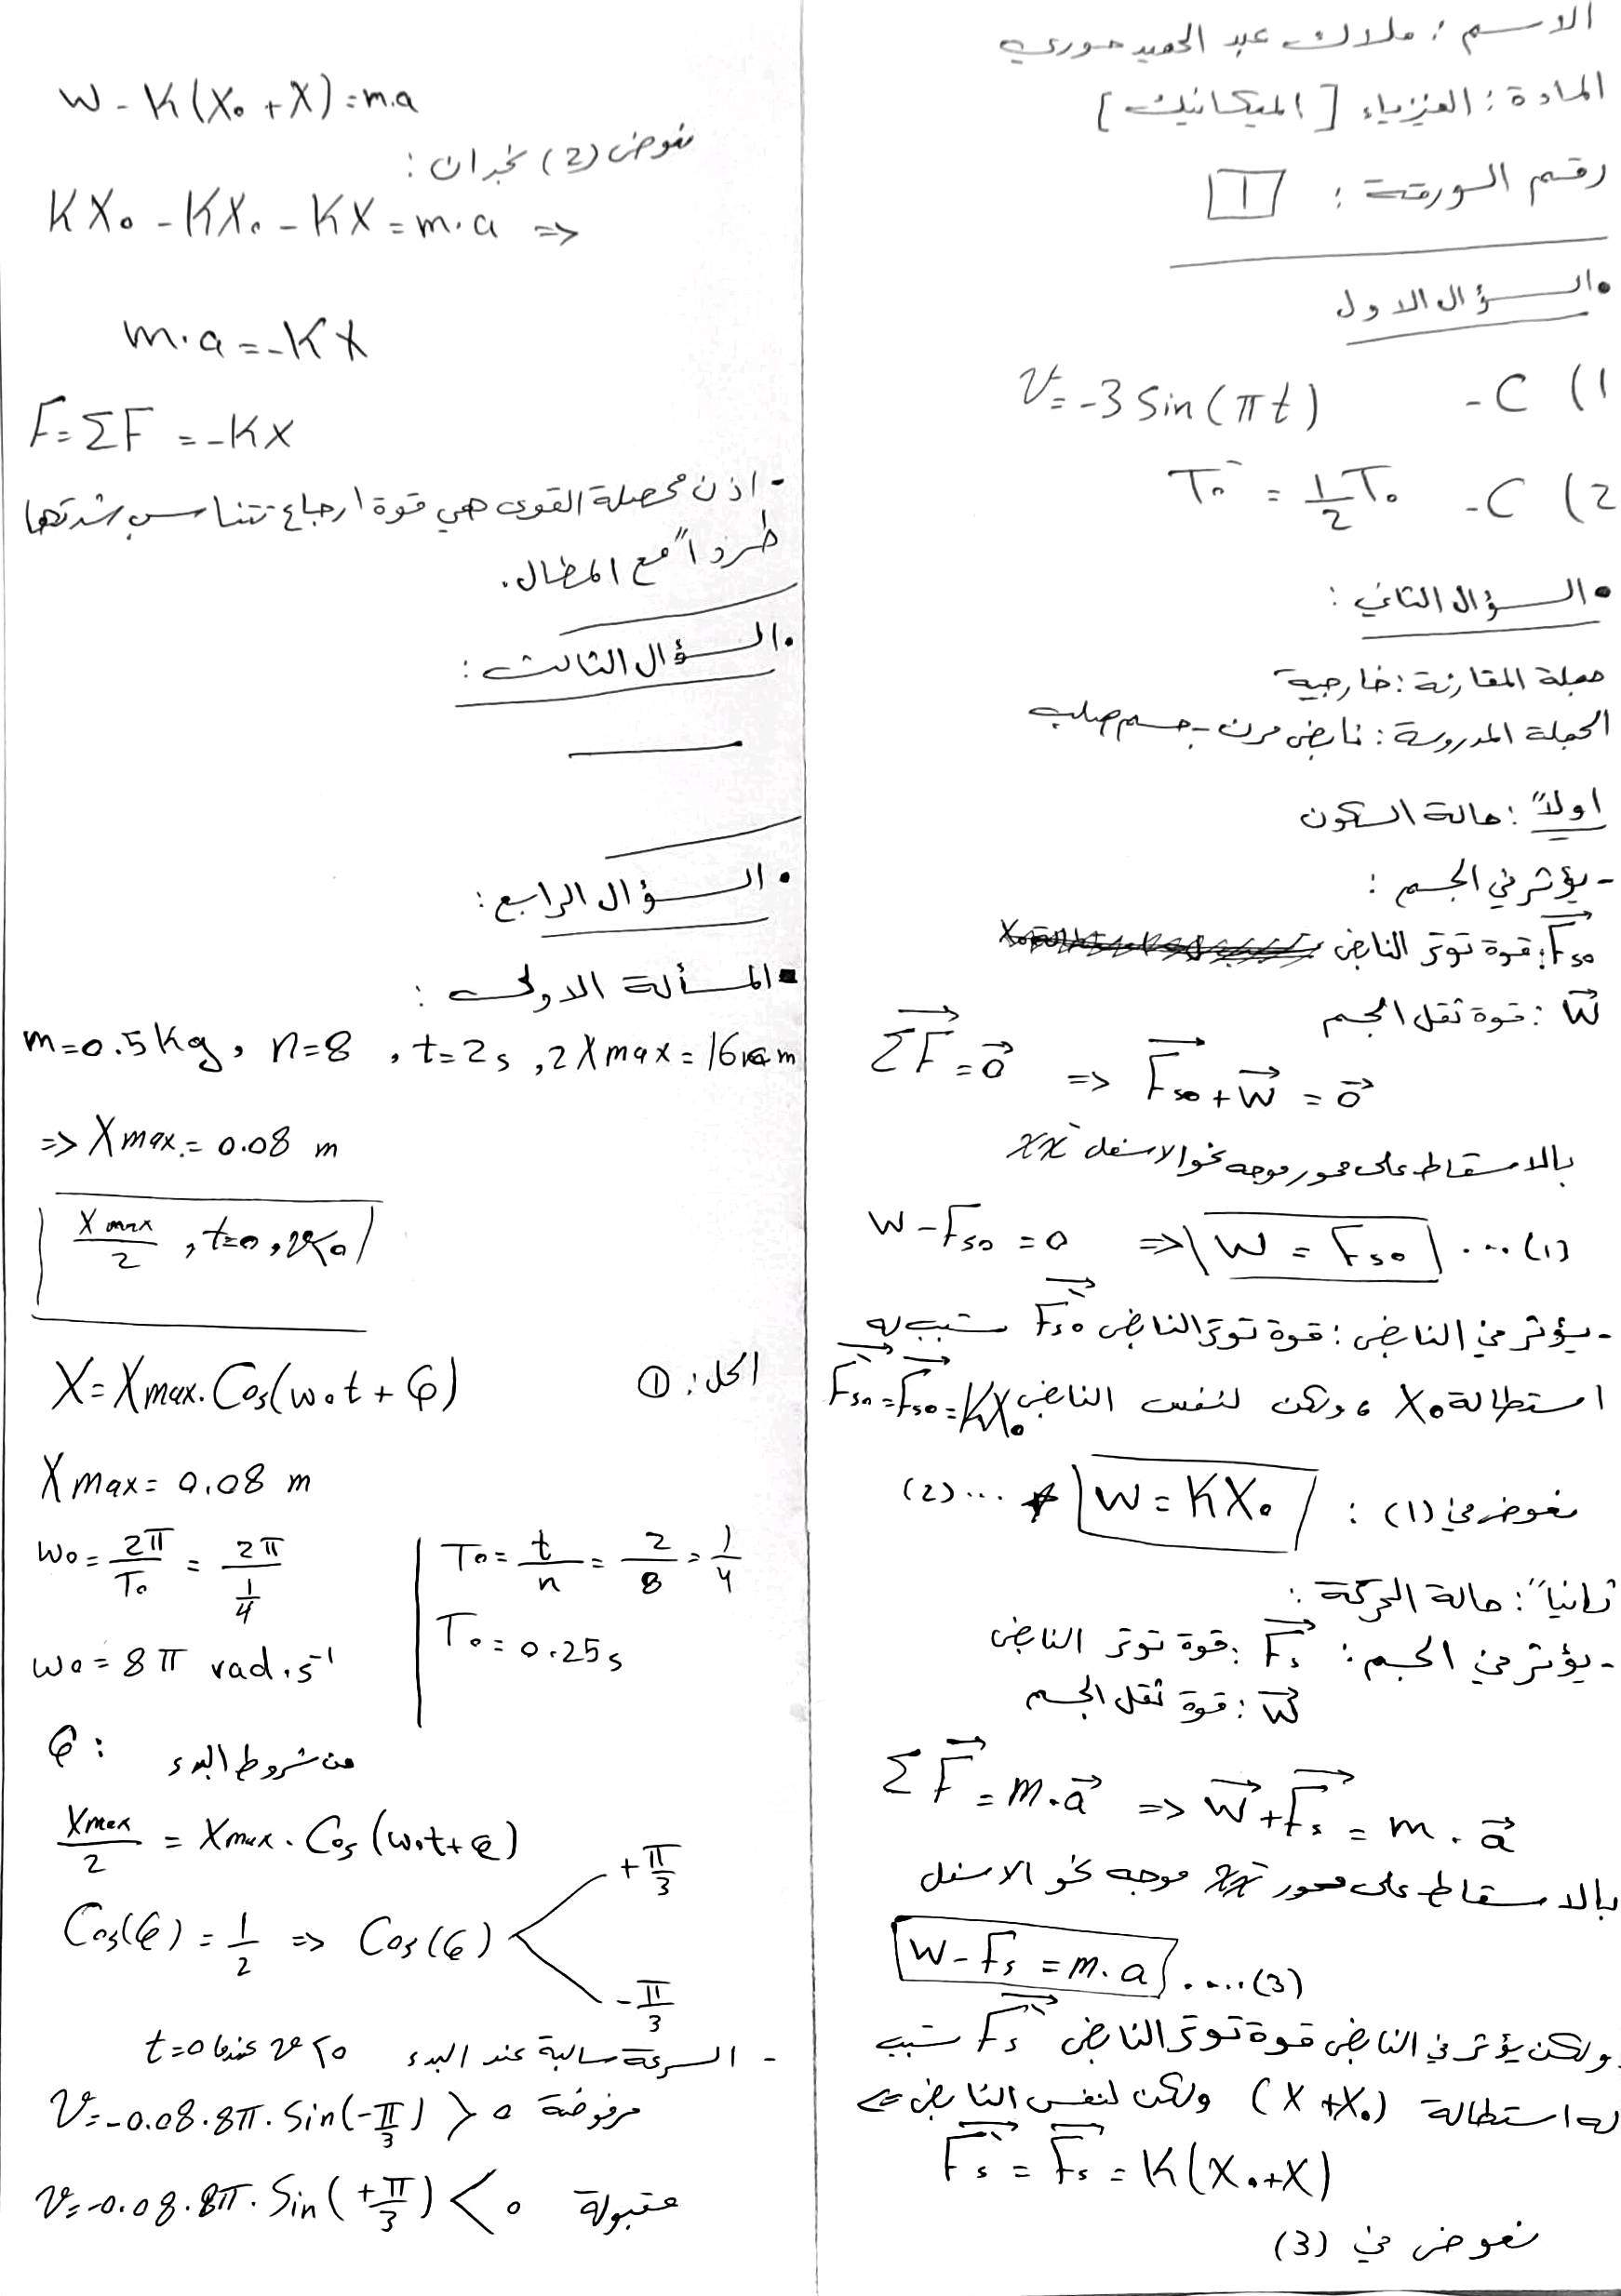 الاسم : ملاك عبد الحميد حوري
المادة : الفيزياء [ الميكانيك ]
رقم الورقة : 1
• السؤال الاول
1) C - v = -3 Sin(πt)
2) C - T₀' = 1/2 T₀
• السؤال الثاني :
جملة المقارنة : خارجية
الجملة المدروسة : نابض مرن - جسم صلب
اولاً : حالة السكون
- يؤثر في الجسم :
F⃗s₀ : قوة توتر النابض
W⃗ : قوة ثقل الجسم
ΣF⃗ = 0⃗ => F⃗s₀ + W⃗ = 0⃗
بالاسقاط على محور موجه نحو الاسفل xx'
W - Fs₀ = 0 => W = Fs₀ ... (1)
- يؤثر في النابض : قوة توتر النابض F⃗s₀' تسبب له
استطالة X₀ ، ولكن لنفس النابض F⃗s₀' = F⃗s₀ = KX₀
نعوض في (1) : W = KX₀ ... (2)
ثانياً : حالة الحركة :
- يؤثر في الجسم : F⃗s : قوة توتر النابض
W⃗ : قوة ثقل الجسم
ΣF⃗ = m.a⃗ => W⃗ + F⃗s = m.a⃗
بالاسقاط على محور xx' موجه نحو الاسفل
W - Fs = m.a .... (3)
ولكن يؤثر في النابض قوة توتر النابض F⃗s' تسبب
له استطالة (X + X₀) ولكن لنفس النابض <=
F⃗s' = F⃗s = K(X₀ + X)
نعوض في (3)
W - K(X₀ + X) = m.a
نعوض (2) نجد ان :
KX₀ - KX₀ - KX = m.a =>
m.a = -KX
F = ΣF = -KX
- اذن محصلة القوى هي قوة ارجاع تتناسب شدتها
طرداً مع المطال.
• السؤال الثالث :
• السؤال الرابع :
▪ المسألة الاولى :
m = 0.5 Kg , n = 8 , t = 2s , 2Xmax = 16 cm
=> Xmax = 0.08 m
Xmax/2 , t=0 , v<0
الحل : ① X = Xmax . Cos(w₀t + φ)
Xmax = 0.08 m
w₀ = 2π/T₀ = 2π/(1/4)
T₀ = t/n = 2/8 = 1/4
T₀ = 0.25 s
w₀ = 8π rad.s⁻¹
من شروط البدء φ :
Xmax/2 = Xmax . Cos(w₀t + φ)
Cos(φ) = 1/2 => Cos(φ) +π/3
-π/3
- السرعة سالبة عند البدء v<0 عندما t=0
v = -0.08 . 8π . Sin(-π/3) > 0 مرفوضة
v = -0.08 . 8π . Sin(+π/3) < 0 مقبولة